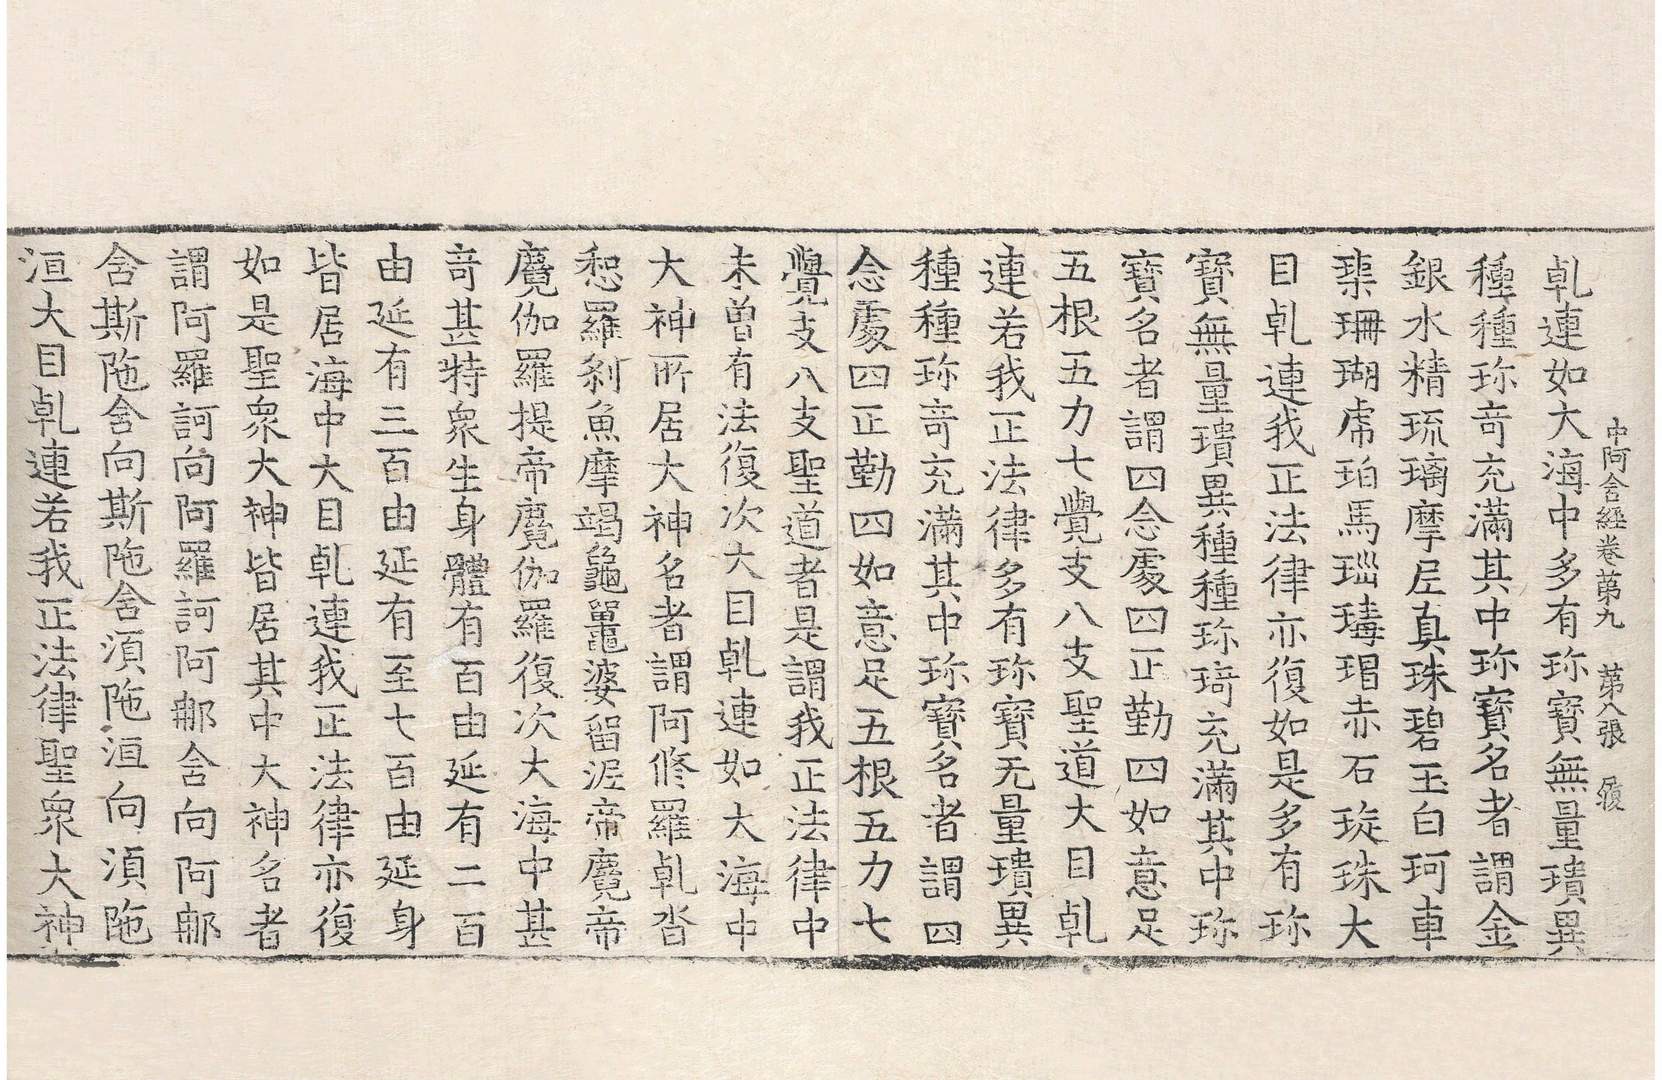 中阿含經卷第九　第八張　履
乹連如大海中多有珎寶無量璝異
種種珎竒充滿其中珎寶名者謂金
銀水精琉璃摩𡰱真珠碧玉白珂車
璖珊瑚虎珀馬瑙瑇瑁赤石琁珠大
目乹連我正法律亦復如是多有珎
寶無量璝異種種珎琦充滿其中珎
寶名者謂四念處四正勤四如意足
五根五力七覺支八支聖道大目乹
連若我正法律多有珎寶无量璝異
種種珎竒充滿其中珎寶名者謂四
念處四正勤四如意足五根五力七
覺支八支聖道者是謂我正法律中
未曾有法復次大目乹連如大海中
大神所居大神名者謂阿修羅乹沓
惒羅剎魚摩竭龜鼉婆留泥帝麑帝
麑伽羅提帝麑伽羅復次大海中甚
竒甚特衆生身體有百由延有二百
由延有三百由延有至七百由延身
皆居海中大目乹連我正法律亦復
如是聖衆大神皆居其中大神名者
謂阿羅訶向阿羅訶阿那含向阿那
含斯陁含向斯陁含湏陁洹向湏陁
洹大目乹連若我正法律聖衆大神